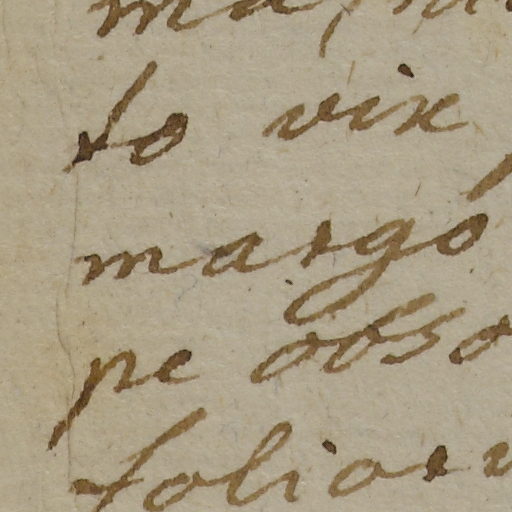 to vix
margo
pe obso
folior